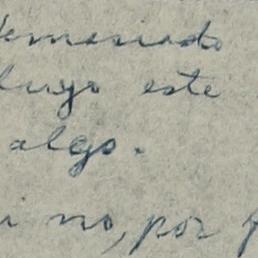 demasiado
luego este
algo.
no, por